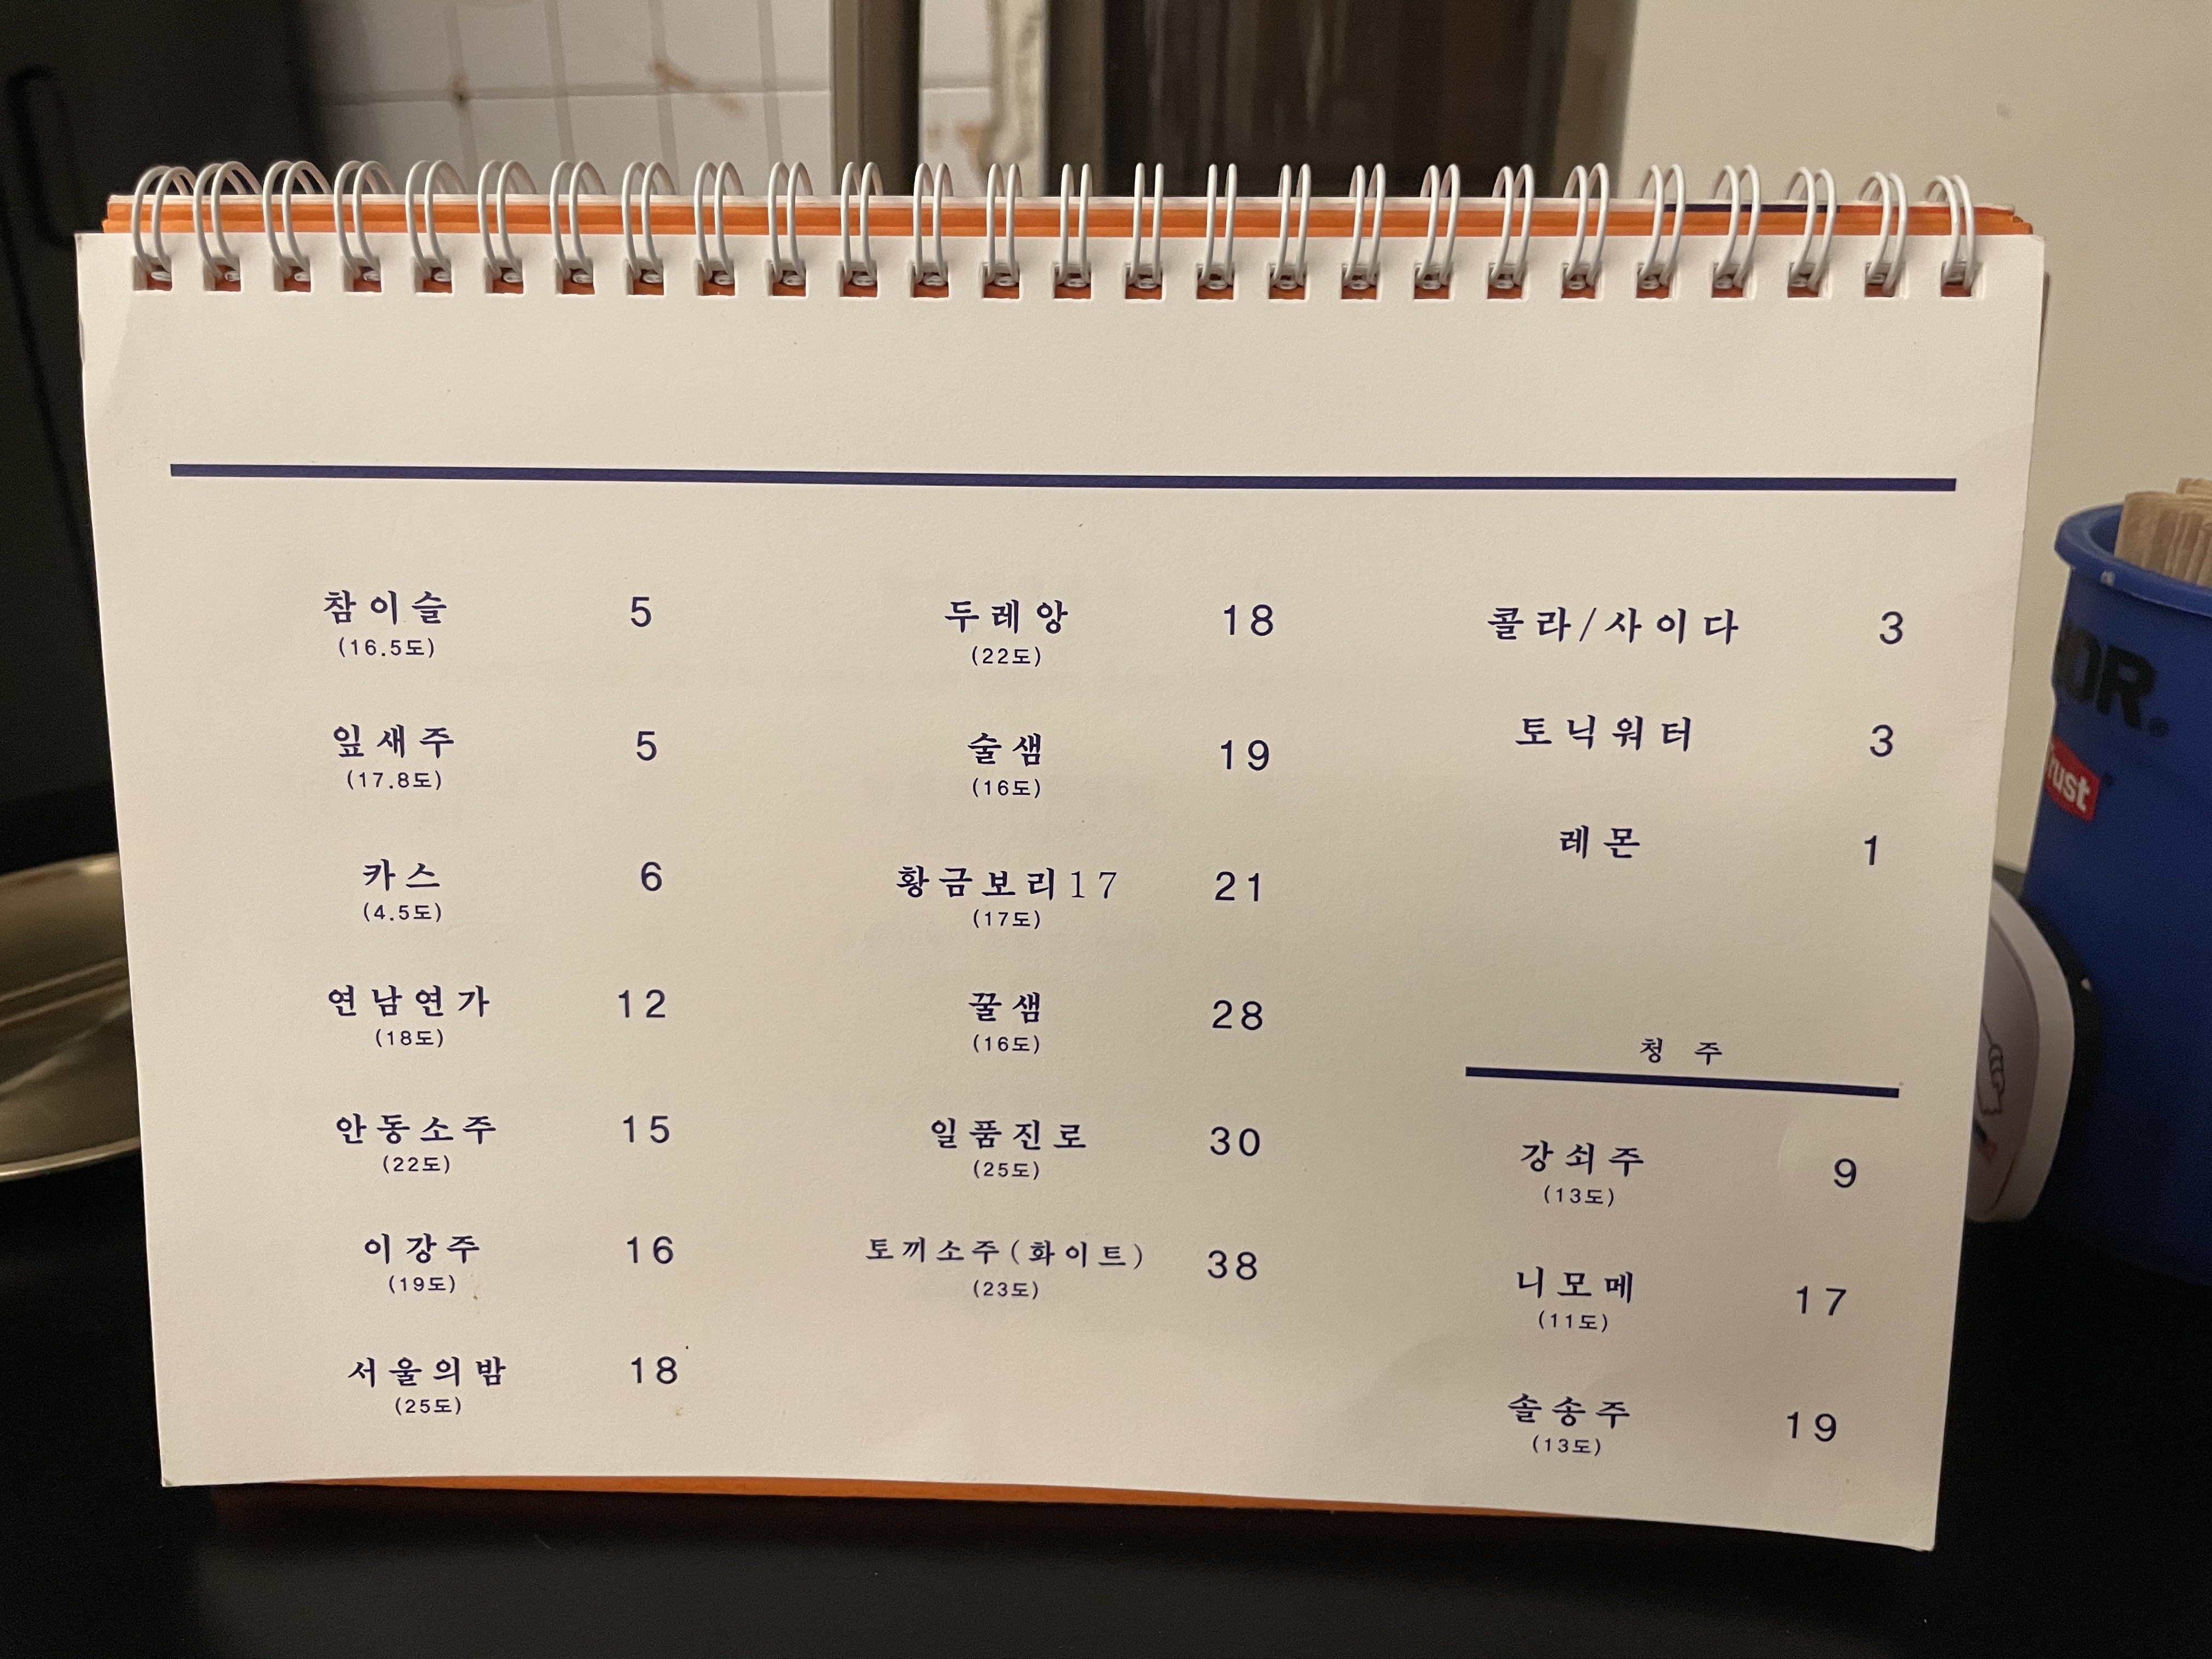 참이슬 5
(16.5도)
잎새주 5
(17.8도)
카스 6
(4.5도)
연남연가 12
(18도)
안동소주 15
(22도)
이강주 16
(19도)
서울의밤 18
(25도)
두레앙 18
(22도)
술샘 19
(16도)
황금보리17 21
(17도)
꿀샘 28
(16도)
일품진로 30
(25도)
토끼소주(화이트) 38
(23도)
콜라/사이다 3
토닉워터 3
레몬 1
청 주
강쇠주 9
(13도)
니모메 17
(11도)
솔송주 19
(13도)
OR®
rust